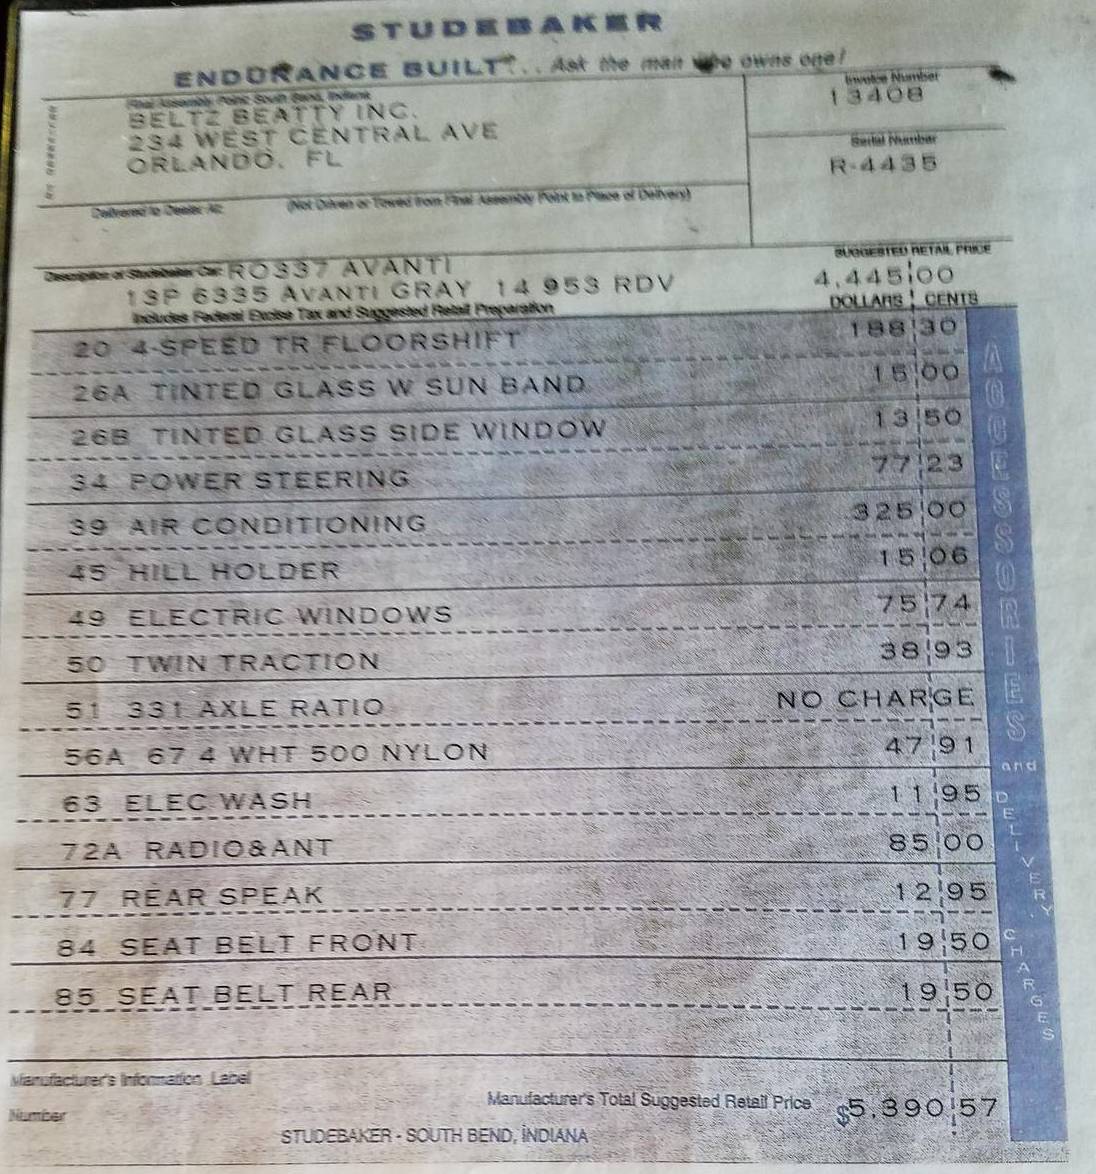 STUDEBAKER
ENDURANCE BUILT... Ask the man who owns one!
Final Assembly Point South Bend, Indiana
BELTZ BEATTY INC.
234 WEST CENTRAL AVE
ORLANDO, FL
Invoice Number
13408
Serial Number
R-4435
Delivered to Dealer At: (Not Driven or Towed from Final Assembly Point to Place of Delivery)
SUGGESTED RETAIL PRICE
Description of Studebaker Car: RO337 AVANTI
13P 6335 AVANTI GRAY 14 953 RDV 4,445 00
Includes Federal Excise Tax and Suggested Retail Preparation DOLLARS CENTS
20 4-SPEED TR FLOORSHIFT 188 30
26A TINTED GLASS W SUN BAND 15 00
26B TINTED GLASS SIDE WINDOW 13 50
34 POWER STEERING 77 23
39 AIR CONDITIONING 325 00
45 HILL HOLDER 15 06
49 ELECTRIC WINDOWS 75 74
50 TWIN TRACTION 38 93
51 331 AXLE RATIO NO CHARGE
56A 67 4 WHT 500 NYLON 47 91
63 ELEC WASH 11 95
72A RADIO&ANT 85 00
77 REAR SPEAK 12 95
84 SEAT BELT FRONT 19 50
85 SEAT BELT REAR 19 50
ACCESSORIES and DELIVERY CHARGES
Manufacturer's Information Label
Number
Manufacturer's Total Suggested Retail Price $5,390 57
STUDEBAKER - SOUTH BEND, INDIANA